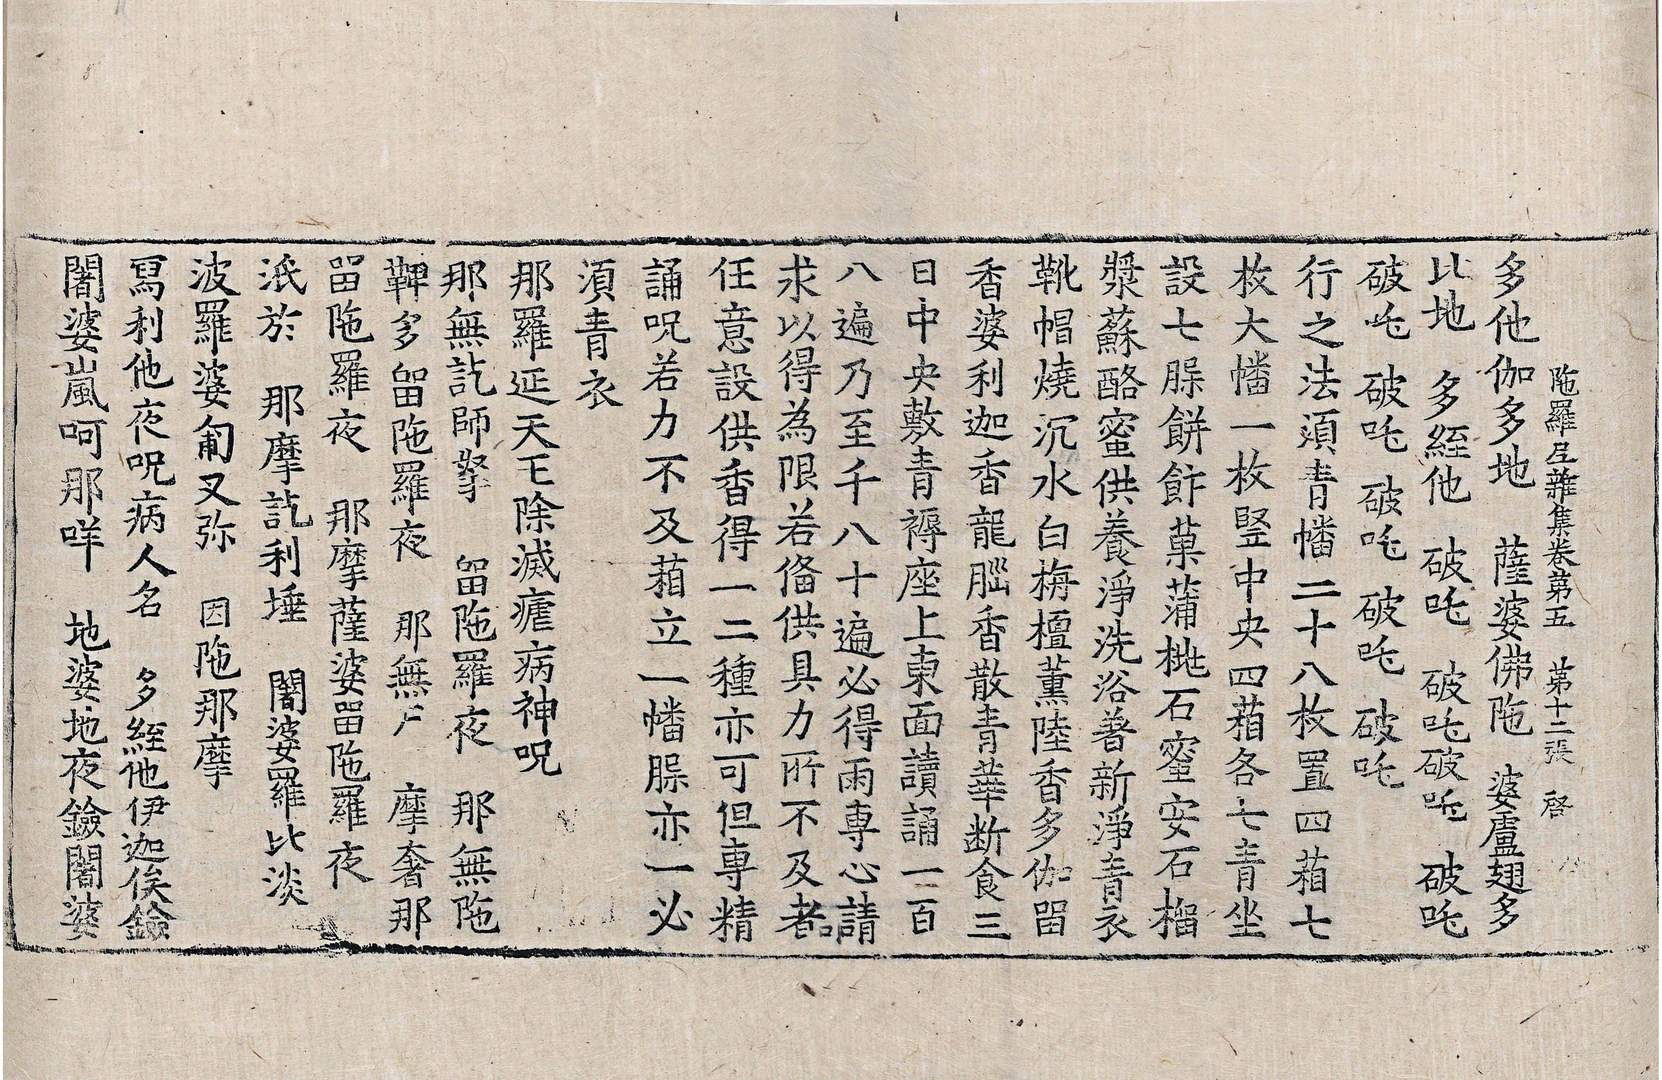 陁羅尼雜集卷第五　第十二張　啓
多他伽多地　薩婆佛陁　婆盧翅多
比地　多緸他　破吒　破吒破吒　破吒
破吒　破吒　破吒　破吒　破吒
行之法須青幡二十八枚置四葙七
枚大幡一枚竪中央四葙各七青坐
設七腂餅飵菓蒲桃石蜜安石榴
漿蘇酪蜜供養淨洗浴著新淨青衣
靴帽燒沉水白栴檀薰陸香多伽留
香婆利迦香龍腦香散青華断食三
日中央敷青褥座上東面讀誦一百
八遍乃至千八十遍必得雨專心請
求以得為限若偹供具力所不及者
任意設供香得一二種亦可但專精
誦呪若力不及葙立一幡腂亦一必
須青衣
那羅延天王除滅瘧病神呪
那無訖師拏　留陁羅夜　那無陁
鞞多留陁羅夜　那無尸　摩奢那
留陁羅夜　那摩薩婆留陁羅夜
泜於　那摩訖利埵　闍婆羅比淡
波羅婆匍叉弥　因陁那摩
冩利他夜呪病人名　多緸他伊迦俟鐱
闍婆嵐呵那咩　地婆地夜鐱闍婆